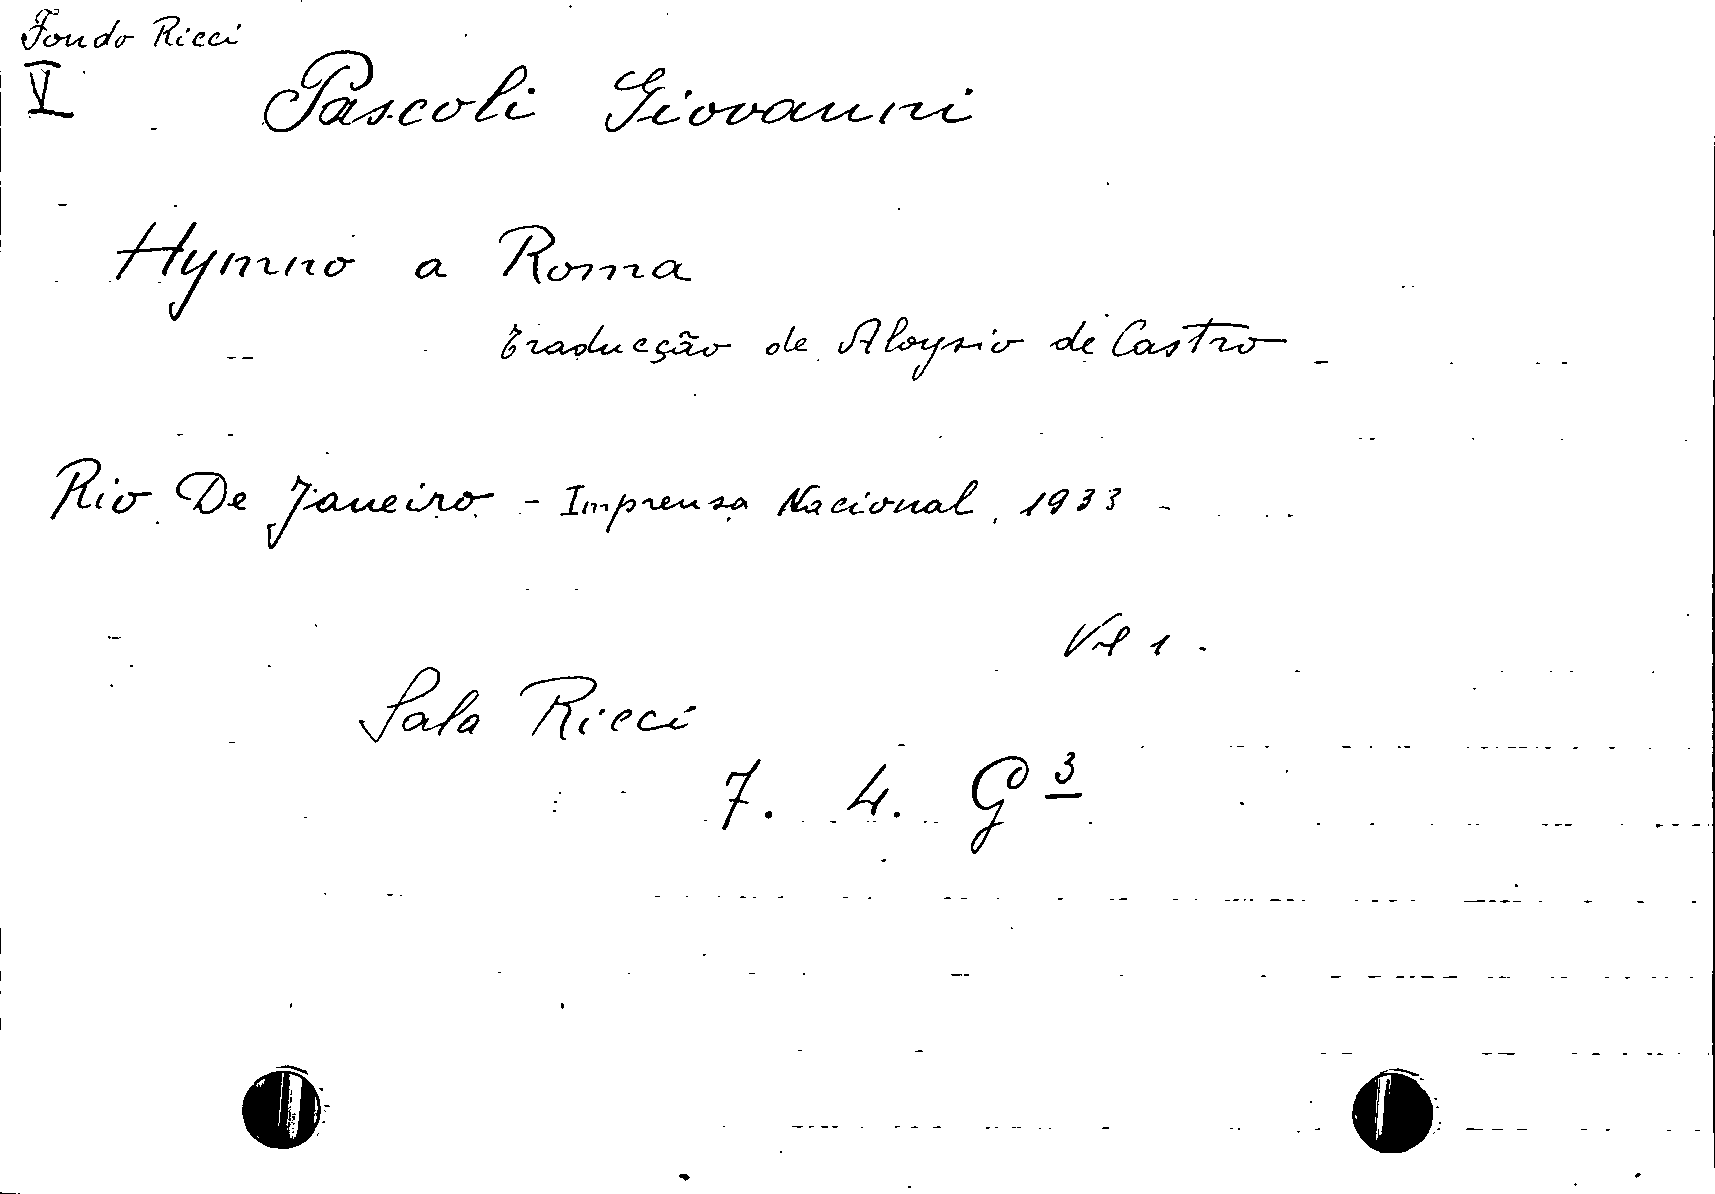 Fondo Ricci
V
Pascoli Giovanni
Hymno a Roma
traducção de Aloysio de Castro
Rio De Janeiro - Imprensa Nacional, 1933
Vol 1.
Sala Ricci
7. 4. G 3